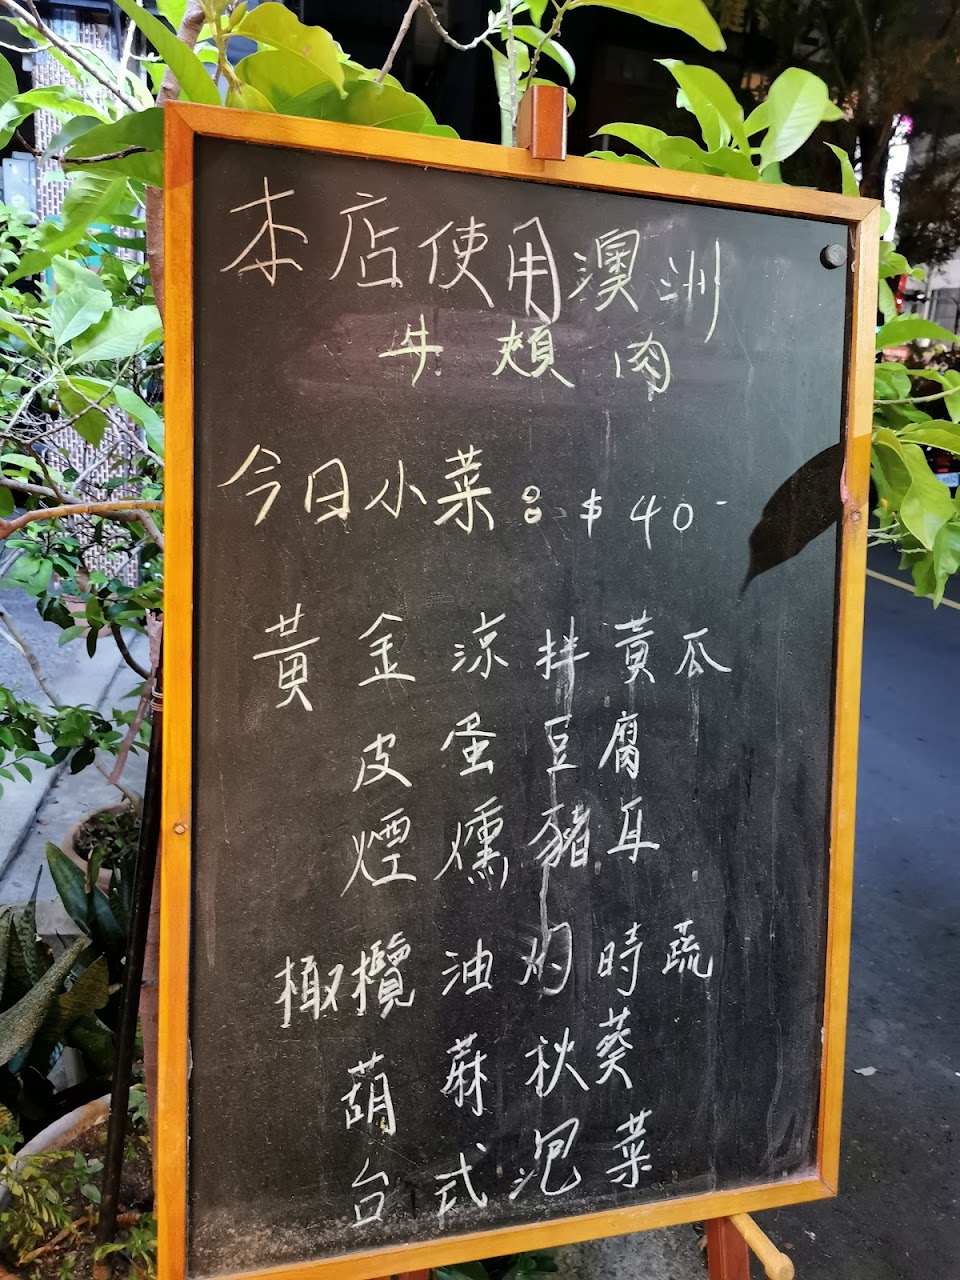 本店使用澳洲
牛頰肉
今日小菜：$40-
黃金涼拌黃瓜
皮蛋豆腐
煙燻豬耳
橄欖油灼時蔬
葫蔴秋葵
台式泡菜